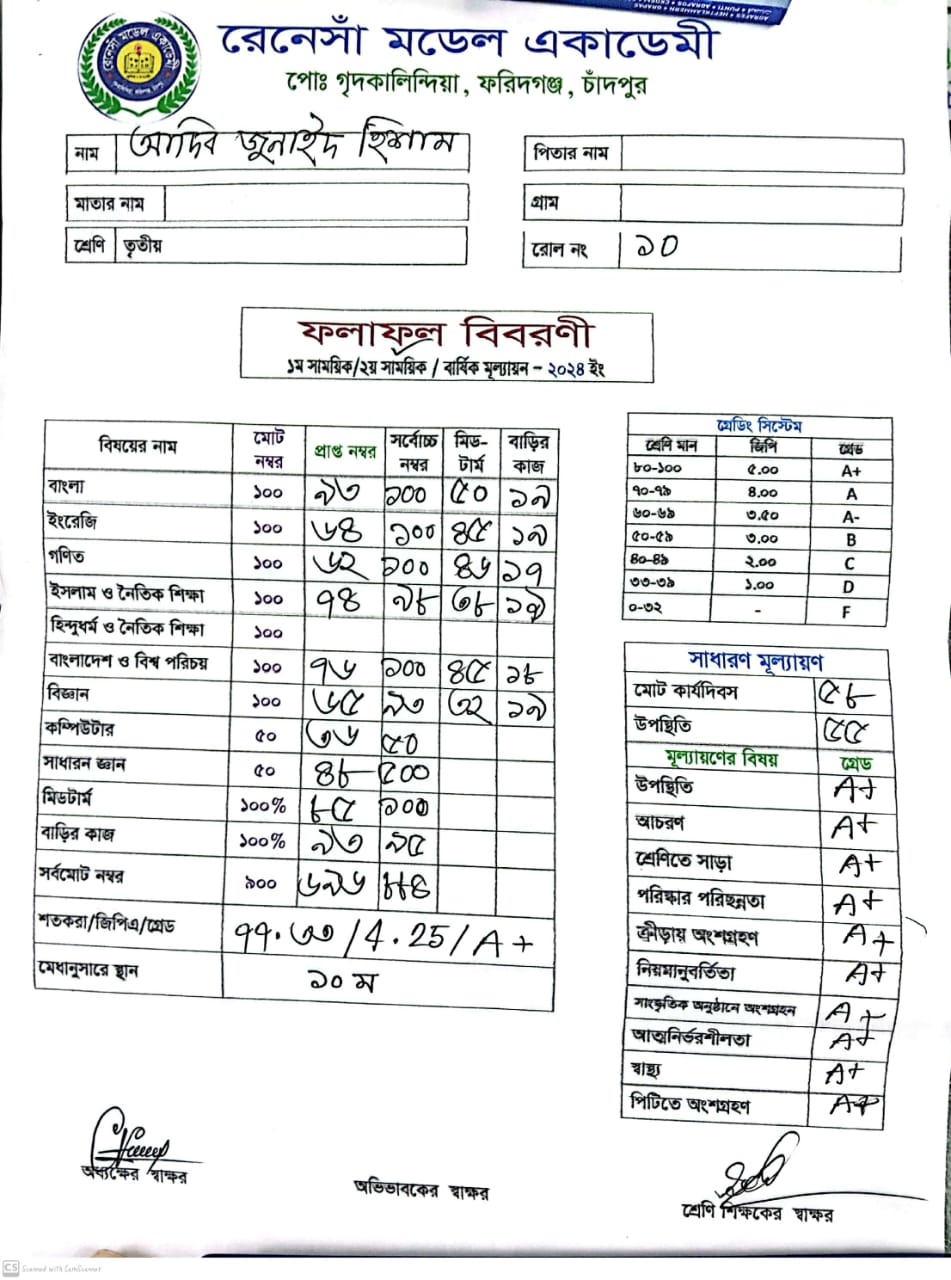 রেনেসাঁ মডেল একাডেমী
পোঃ গৃদকালিন্দিয়া, ফরিদগঞ্জ, চাঁদপুর
নাম আদিব জুনাইদ হিশাম
পিতার নাম
মাতার নাম
গ্রাম
শ্রেণি তৃতীয়
রোল নং ১০
ফলাফল বিবরণী
১ম সাময়িক/২য় সাময়িক / বার্ষিক মূল্যায়ন - ২০২৪ ইং
বিষয়ের নাম মোট নম্বর প্রাপ্ত নম্বর সর্বোচ্চ নম্বর মিড-টার্ম বাড়ির কাজ
বাংলা ১০০ ৯৩ ১০০ ৫০ ১৯
ইংরেজি ১০০ ৬৪ ১০০ ৪৫ ১৯
গণিত ১০০ ৬২ ১০০ ৪৬ ১৭
ইসলাম ও নৈতিক শিক্ষা ১০০ ৭৪ ৯৮ ৩৮
হিন্দুধর্ম ও নৈতিক শিক্ষা ১০০
বাংলাদেশ ও বিশ্ব পরিচয় ১০০ ৭৬ ১০০ ৪৫ ১৮
বিজ্ঞান ১০০ ৬৫ ৯৩ ৩২ ১৯
কম্পিউটার ৫০ ৩৬ ৫০
সাধারন জ্ঞান ৫০ ৪৮ ৫০০
মিডটার্ম ১০০% ৮৫ ১০০
বাড়ির কাজ ১০০% ৯৩ ৯৫
সর্বমোট নম্বর ৯০০ ৬৯৬ ৮৮৪
শতকরা/জিপিএ/গ্রেড ৭৭.৩৩ /4.25/A+
মেধানুসারে স্থান ১০ ম
গ্রেডিং সিস্টেম
শ্রেণি মান জিপি গ্রেড
৮০-১০০ ৫.০০ A+
৭০-৭৯ ৪.০০ A
৬০-৬৯ ৩.৫০ A-
৫০-৫৯ ৩.০০ B
৪০-৪৯ ২.০০ C
৩৩-৩৯ ১.০০ D
০-৩২ - F
সাধারণ মূল্যায়ণ
মোট কার্যদিবস ৫৮
উপস্থিতি ৫৫
মূল্যায়ণের বিষয় গ্রেড
উপস্থিতি A+
আচরণ A+
শ্রেণিতে সাড়া A+
পরিষ্কার পরিছন্নতা A+
ক্রীড়ায় অংশগ্রহণ A+
নিয়মানুবর্তিতা A+
সাংস্কৃতিক অনুষ্ঠানে অংশগ্রহন A+
আত্মনির্ভরশীলতা A+
স্বাস্থ্য A+
পিটিতে অংশগ্রহণ A+
অধ্যক্ষের স্বাক্ষর
অভিভাবকের স্বাক্ষর
শ্রেণি শিক্ষকের স্বাক্ষর
CS Scanned with CamScanner